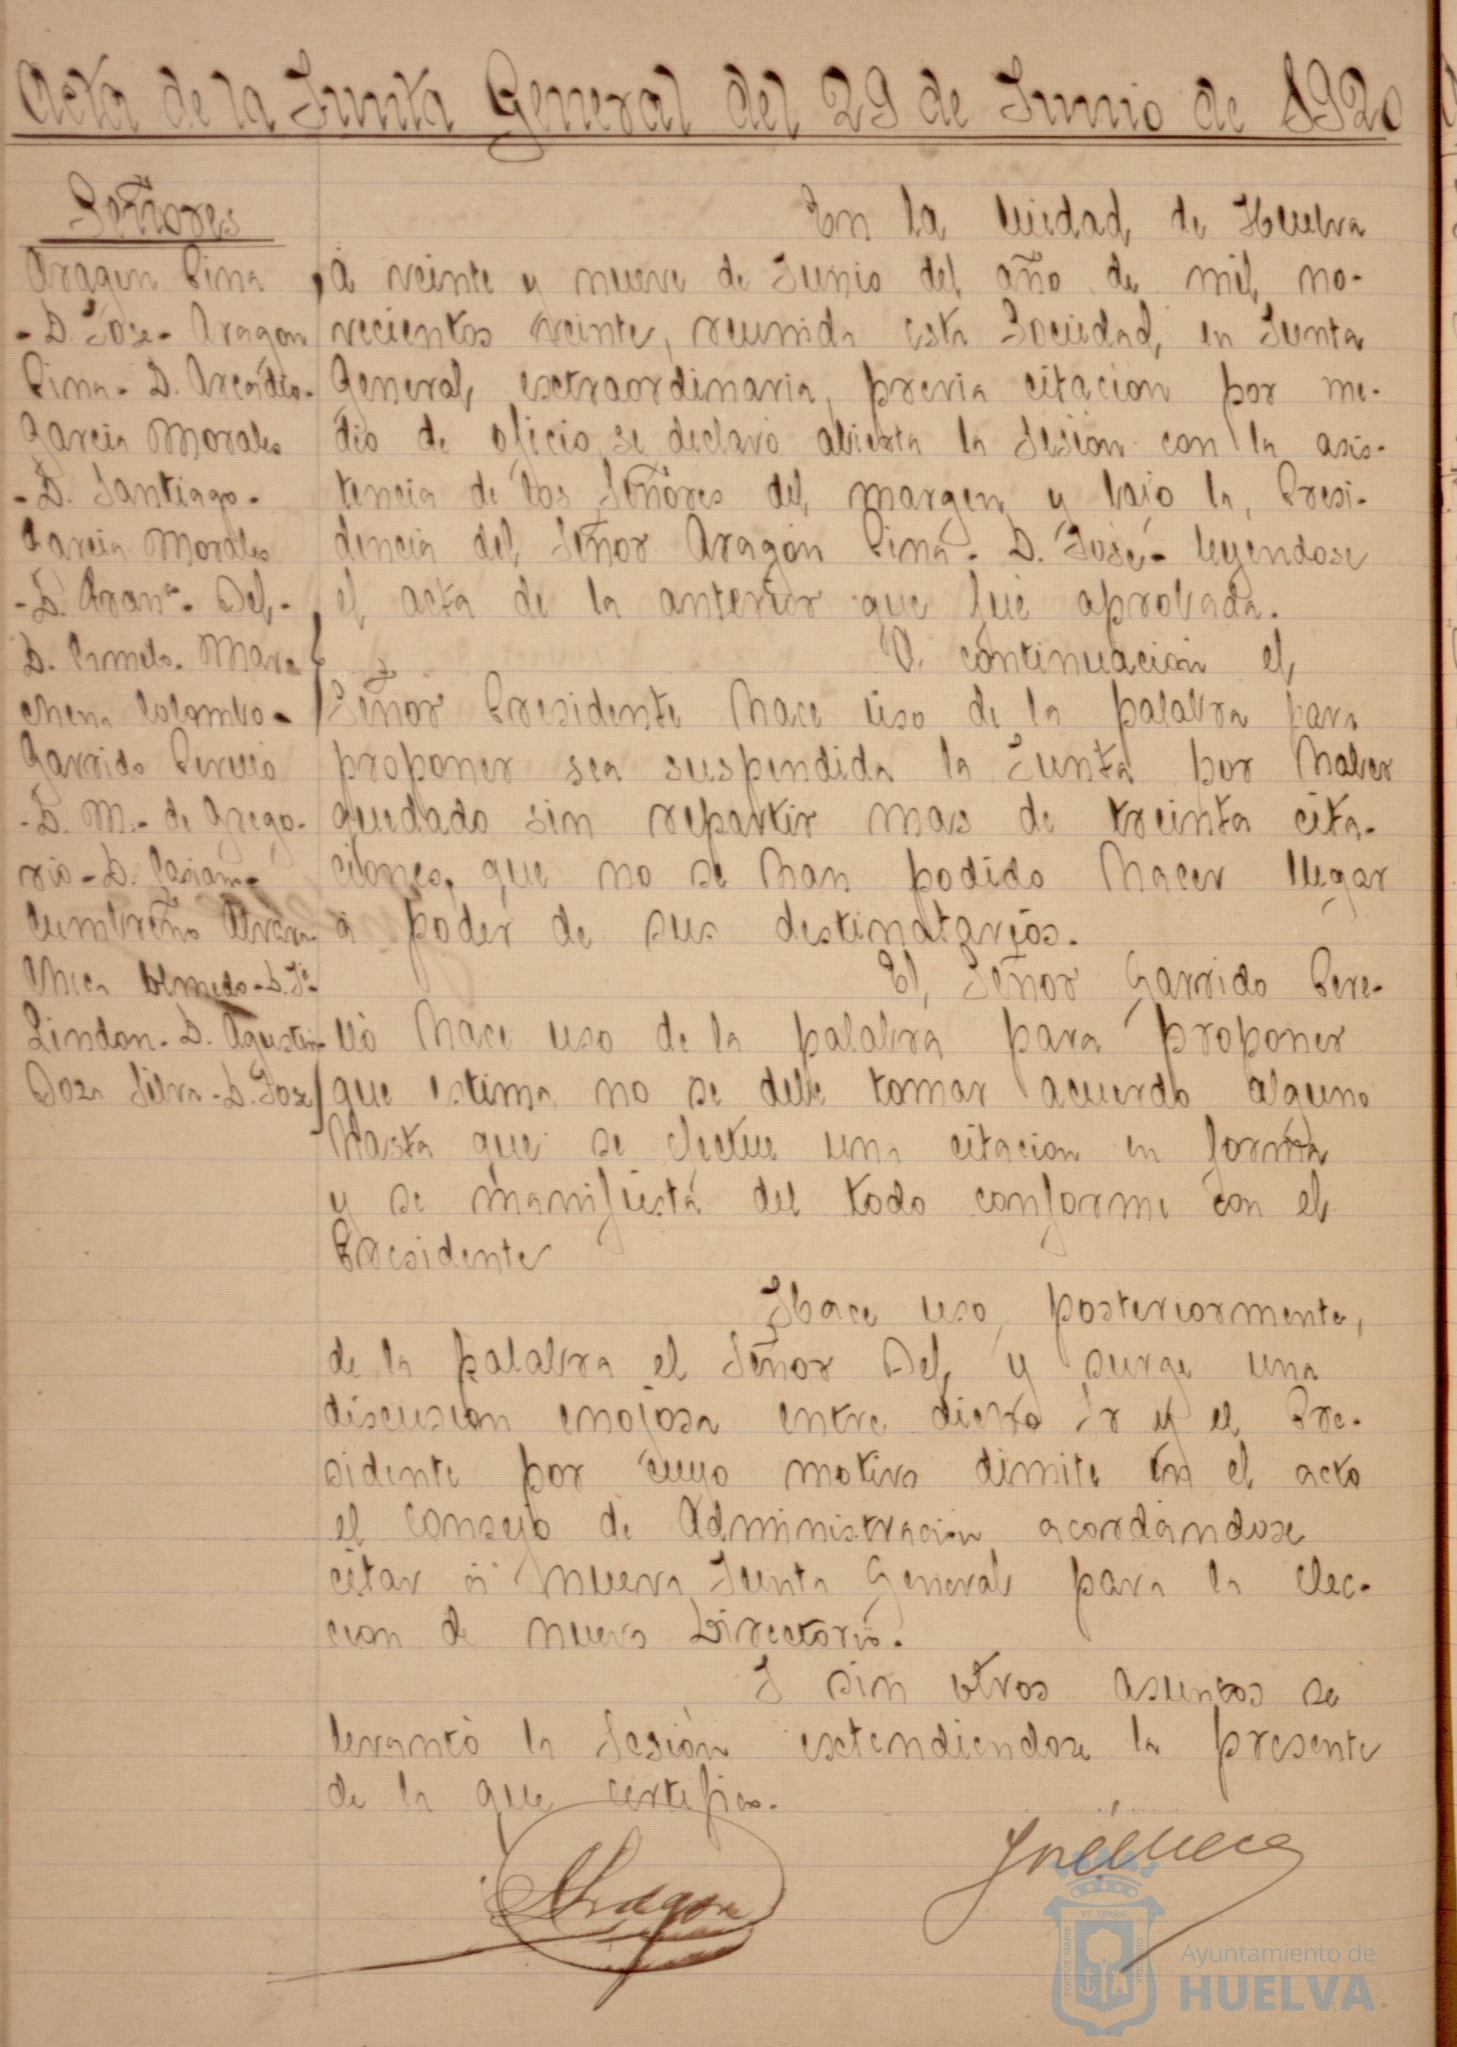 Acta de la Junta General del 29 de Junio de 1920
Señores
Aragon Pina
- D. Jose - Aragon
Pina - D. Arcadio -
Garcia Morales
- D. Santiago -
Garcia Morales
- D. Franco - Del -
D. Camelo - Mar
chena Colombo -
Garrido Perelló
- D. M. - de Grego-
rio - D. Casiano -
Cumbreño Alvara
Checa Olmedo - D. Je
Lindon - D. Agustin
Soza Silva - D. Jose
En la Ciudad de Huelva
á veinte y nueve de Junio del año de mil no-
vecientos veinte, reunida esta Sociedad, en Junta
General, esctraordinaria, previa citacion por me-
dio de oficio, se declaró abierta la Sesión con la asis-
tencia de los Señores del margen y bajo la Presi-
dencia del Señor Aragón Pina - D. José - leyendose
el acta de la anterior que fué aprobada.
A continuación el
Señor Presidente hace uso de la palabra para
proponer sea suspendida la Junta por haber
quedado sin repartir mas de treinta cita-
ciones, que no se han podido hacer llegar
a poder de sus destinatarios.
El Señor Garrido Pere-
lló hace uso de la palabra para proponer
que estima no se debe tomar acuerdo alguno
hasta que se efectue una citacion en forma
y se manifiesta del todo conforme con el
Presidente
Hace uso, posteriormente,
de la palabra el Señor Del, y surge una
discusion enojosa entre dicho Sr y el Pre-
sidente por cuyo motivo dimite en el acto
el Consejo de Administracion acordándose
citar á nueva Junta General para la elec-
cion de nuevo Directorio.
I sin otros asuntos se
levantó la Sesión esctendiendose la presente
de la que certifico.
Aragon
José Checa
Ayuntamiento de
HUELVA